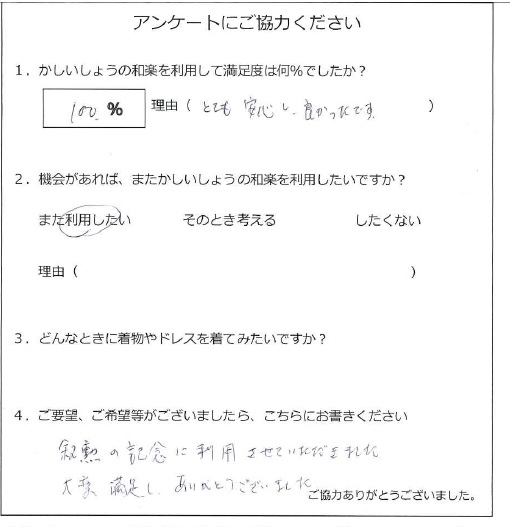 アンケートにご協力ください
1．かしいしょうの和楽を利用して満足度は何％でしたか？
100 % 理由（ とても 安心し、良かったです ）
2．機会があれば、またかしいしょうの和楽を利用したいですか？
また利用したい そのとき考える したくない
理由（ ）
3．どんなときに着物やドレスを着てみたいですか？
4．ご要望、ご希望等がございましたら、こちらにお書きください
叙勲の記念に利用させていただきました
大変満足し、ありがとうございました
ご協力ありがとうございました。